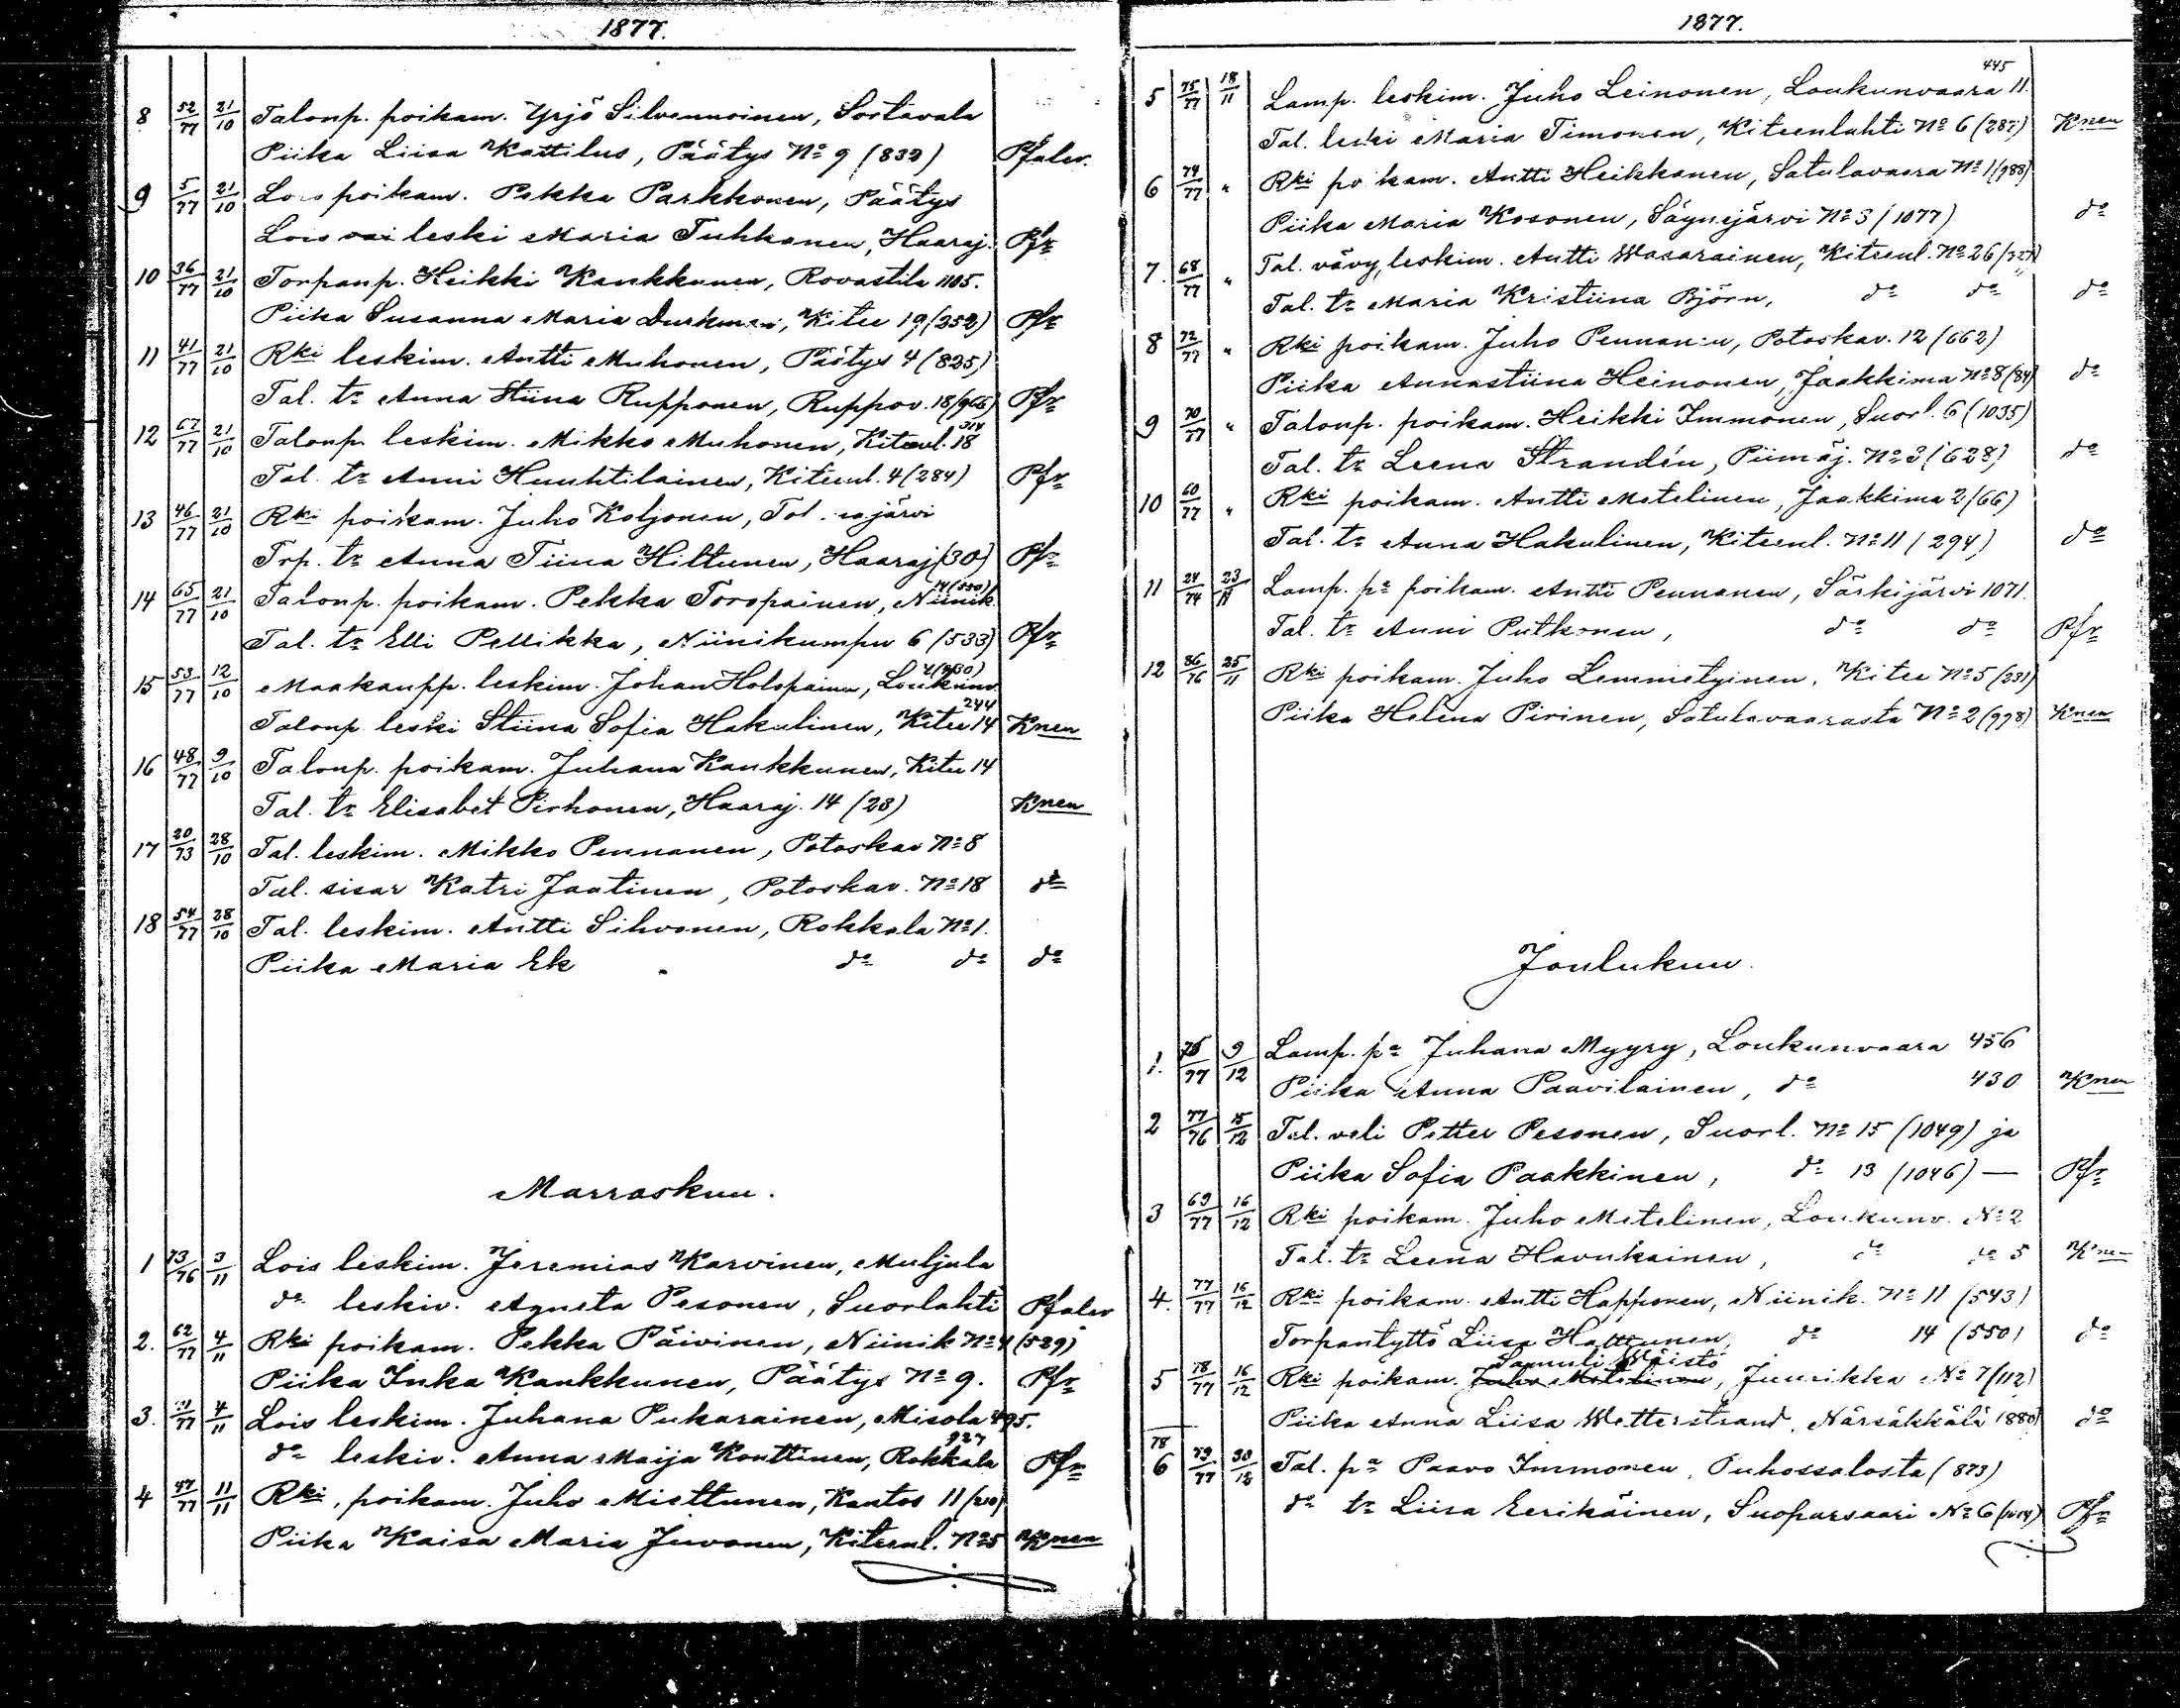 1877.
8 52/77 21/10 Talonp. poikam. Yrjö Silvennoinen, Sortavala
Piika Liisa Kattilus, Päätys No 9 (832) Pfaler.
9 5/77 21/10 Lois poikam. Pekka Parkkonen, Päätys
Lois vai leski Maria Tuhkanen, Haaraj. Pfr
10 36/77 21/10 Torpanp. Heikki Kankkunen, Rovastila 1105.
Piika Susanna Maria Durkman, Kitee 19 (252) Pfr
11 41/77 21/10 Rki leskim. Antti Muhonen, Päätys 4 (825)
Tal. tr Anna Stiina Rupponen, Ruppov. 18 (966) Pfr
12 67/77 21/10 Talonp. leskim. Mikko Muhonen, Kiteenl. 18 314
Tal. tr Anni Huuhtilainen, Kiteenl. 4 (284) Pfr
13 46/77 21/10 Rki poikam. Juho Koljonen, järvi
Trp. tr Anna Tiina Hiltunen, Haaraj (30) Pfr
14 65/77 21/10 Talonp. poikam. Pekka Toropainen, Niinik. 14 (550)
Tal. tr Elli Pellikka, Niinikumpu 6 (533) Pfr
15 53/77 12/10 Maakaupp. leskim. Johan Holopainen, Loukunv.
Talonp. leski Stiina Sofia Hakulinen, Kitee 14 244 Knen
16 48/77 9/10 Talonp. poikam. Juhana Kankkunen, Kitee 14
Tal. tr Elisabet Pirhonen, Haaraj. 14 (28) Knen
17 20/73 28/10 Tal. leskim. Mikko Pennanen, Potoskav No 8
Tal. sisar Katri Jaatinen, Potoskav. No 18 do
18 54/77 28/10 Tal. leskim. Antti Sihvonen, Rokkala No 1.
Piika Maria Ek do do do
Marraskuu.
1 73/76 3/11 Lois leskim. Jeremias Karvinen, Muljula
do leskiv. Agneta Pesonen, Suorlahti Pfaler
2. 62/77 4/11 Rki poikam. Pekka Päivinen, Niinik No 4 (529)
Piika Inka Kankkunen, Päätys No 9. Pfr
3. 4/11 Lois leskim. Juhana Pukarainen, Misola 495.
do leskiv. Anna Maija Konttinen, Rokkala 927 Pfr
4 47/77 11/11 Rki. poikam. Juho Miettunen, Kantos 11 (210)
Piika Kaisa Maria Juvonen, Kiteenl. No 5 Knen
1877.
5 75/77 18/11 Lamp. leskim. Juho Leinonen, Loukunvaara 11. 445
Tal. leski Maria Timonen, Kiteenlahti No 6 (287) Knen
6 74/77 " Rki poikam. Antti Heikkanen, Satulavaara No 1 (988)
Piika Maria Kosonen, Säynejärvi No 3 (1077) do
7. 68/77 " Tal. vävy, leskim. Antti Wasarainen, Kiteenl. No 26 (327)
Tal. tr Maria Kristiina Björn, do do do
8 72/77 " Rki poikam. Juho Pennanen, Potoskav. 12 (662)
Piika Annastiina Heinonen, Jaakkima No 8 (84) do
9 70/77 " Talonp. poikam. Heikki Immonen, Suorl. 6 (1035)
Tal. tr Leena Strandén, Piimäj. No 3 (628) do
10 60/77 " Rki poikam. Antti Metelinen, Jaakkima 2 (66)
Tal. tr Anna Hakulinen, Kiteenl. No 11 (294) do
11 24/74 23/11 Lamp. pa poikam. Antti Pennanen, Särkijärvi 1071.
Tal. tr Anni Putkonen, do do Pfr
12 86/76 25/11 Rki poikam. Juho Lemmetyinen, Kitee No 5 (231)
Piika Helena Pirinen, Satulavaarasta No 2 (998) Knen
Joulukuu.
1. 76/77 9/12 Lamp. pa Juhana Myyry, Loukunvaara 456
Piika Anna Paavilainen, do 430 Knen
2 77/76 15/12 Tal. veli Petter Pesonen, Suorl. No 15 (1049) ja
Piika Sofia Paakkinen, do 13 (1046) — Pfr
3 69/77 16/12 Rki poikam. Juho Metelinen, Loukunv. No 2
Tal. tr Leena Havukainen, do do 5 Knen
4. 77/77 16/12 Rki poikam. Antti Happonen, Niinik. No 11 (543)
Torpantyttö Liisa Hattunen, do 14 (550) do
Samuli Wäistö
5 78/77 16/12 Rki poikam. Juho Metelinen, Juurikka No 7 (112)
Piika Anna Liisa Wetterstrand, Närsäkkälä (880) do
78
6 79/77 30/12 Tal. pa Paavo Immonen, Puhossalosta (873)
do tr Liisa Eerikäinen, Suoparsaari No 6 (1014) Pfr